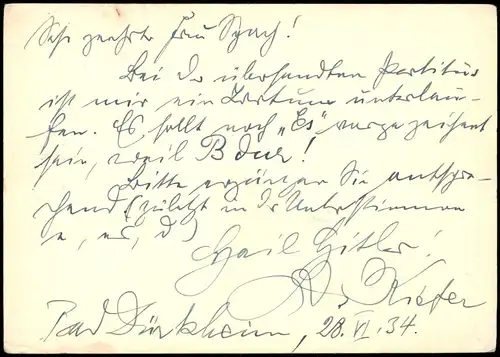 Sehr geehrte Frau Spach!
Bei der übersandten Partitur
ist mir ein Irrtum unterlau-
fen. Es sollt noch „Es" vorgezeichnet
sein, weil B dur!
Bitte ergänzen Sie entspre-
chend (zuletzt in der Unterstimme
e, es, d)
Heil Hitler!
Kiefer
Bad Dürkheim, 28. VI. 34.